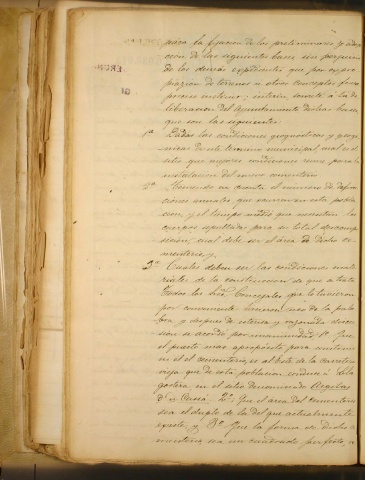 para la fijacion de los preliminares y adop
cion de las siguientes bases sin perjuicio
de los demás espedientes que por espro
piacion de terrenos u otros conceptos fuera
preciso instruir, interin sometió a la de
liberacion del Ayuntamiento dichas bases
que son las siguientes:
1ª Dadas las condiciones geognosticas y geog
nicas de este termino municipal cual es el
sitio que mejores condiciones reune para la
instalacion del nuevo cementerio
2ª Teniendo en cuenta el número de defun
ciones anuales que ocurren en esta pobla
cion, y el tiempo medio que necesitan los
cuerpos sepultados para su total descompo
sicion, cual debe ser el área de dicho ce
menterio, y
3ª Cuales deben ser las condiciones mate
riales de la construccion de que se trata
Todos los Sres. Concejales que lo tuvieron
por conveniente hicieron uso de la pala
bra y despues de estensa y razonada discu
sion se acordó por unanimidad: 1º Que
el puesto mas apropósito para construir
en él el cementerio, es al Este de la carretera
vieja que de esta poblacion conduce á
en el sitio denominado
2º: Que el area del cementerio
sea el duplo de la del que actualmente
existe, y 3º Que la forma de dicho ce
menterio sea un cuadrado perfecto, a